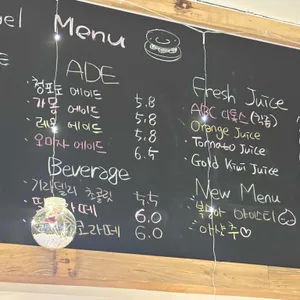 el Menu
ADE
· 청포도 에이드 5.8
· 자몽 에이드 5.8
· 레몬 에이드 5.8
· 오미자 에이드 6.5
Beverage
· 기라델리 초콜릿 5.5
라떼 6.0
라떼 6.0
Fresh Juice
· ABC 디톡스 (착즙)
· Orange Juice
· Tomato Juice
· Gold Kiwi Juice
New Menu
· 복숭아 아이스티
· 아샷추♡